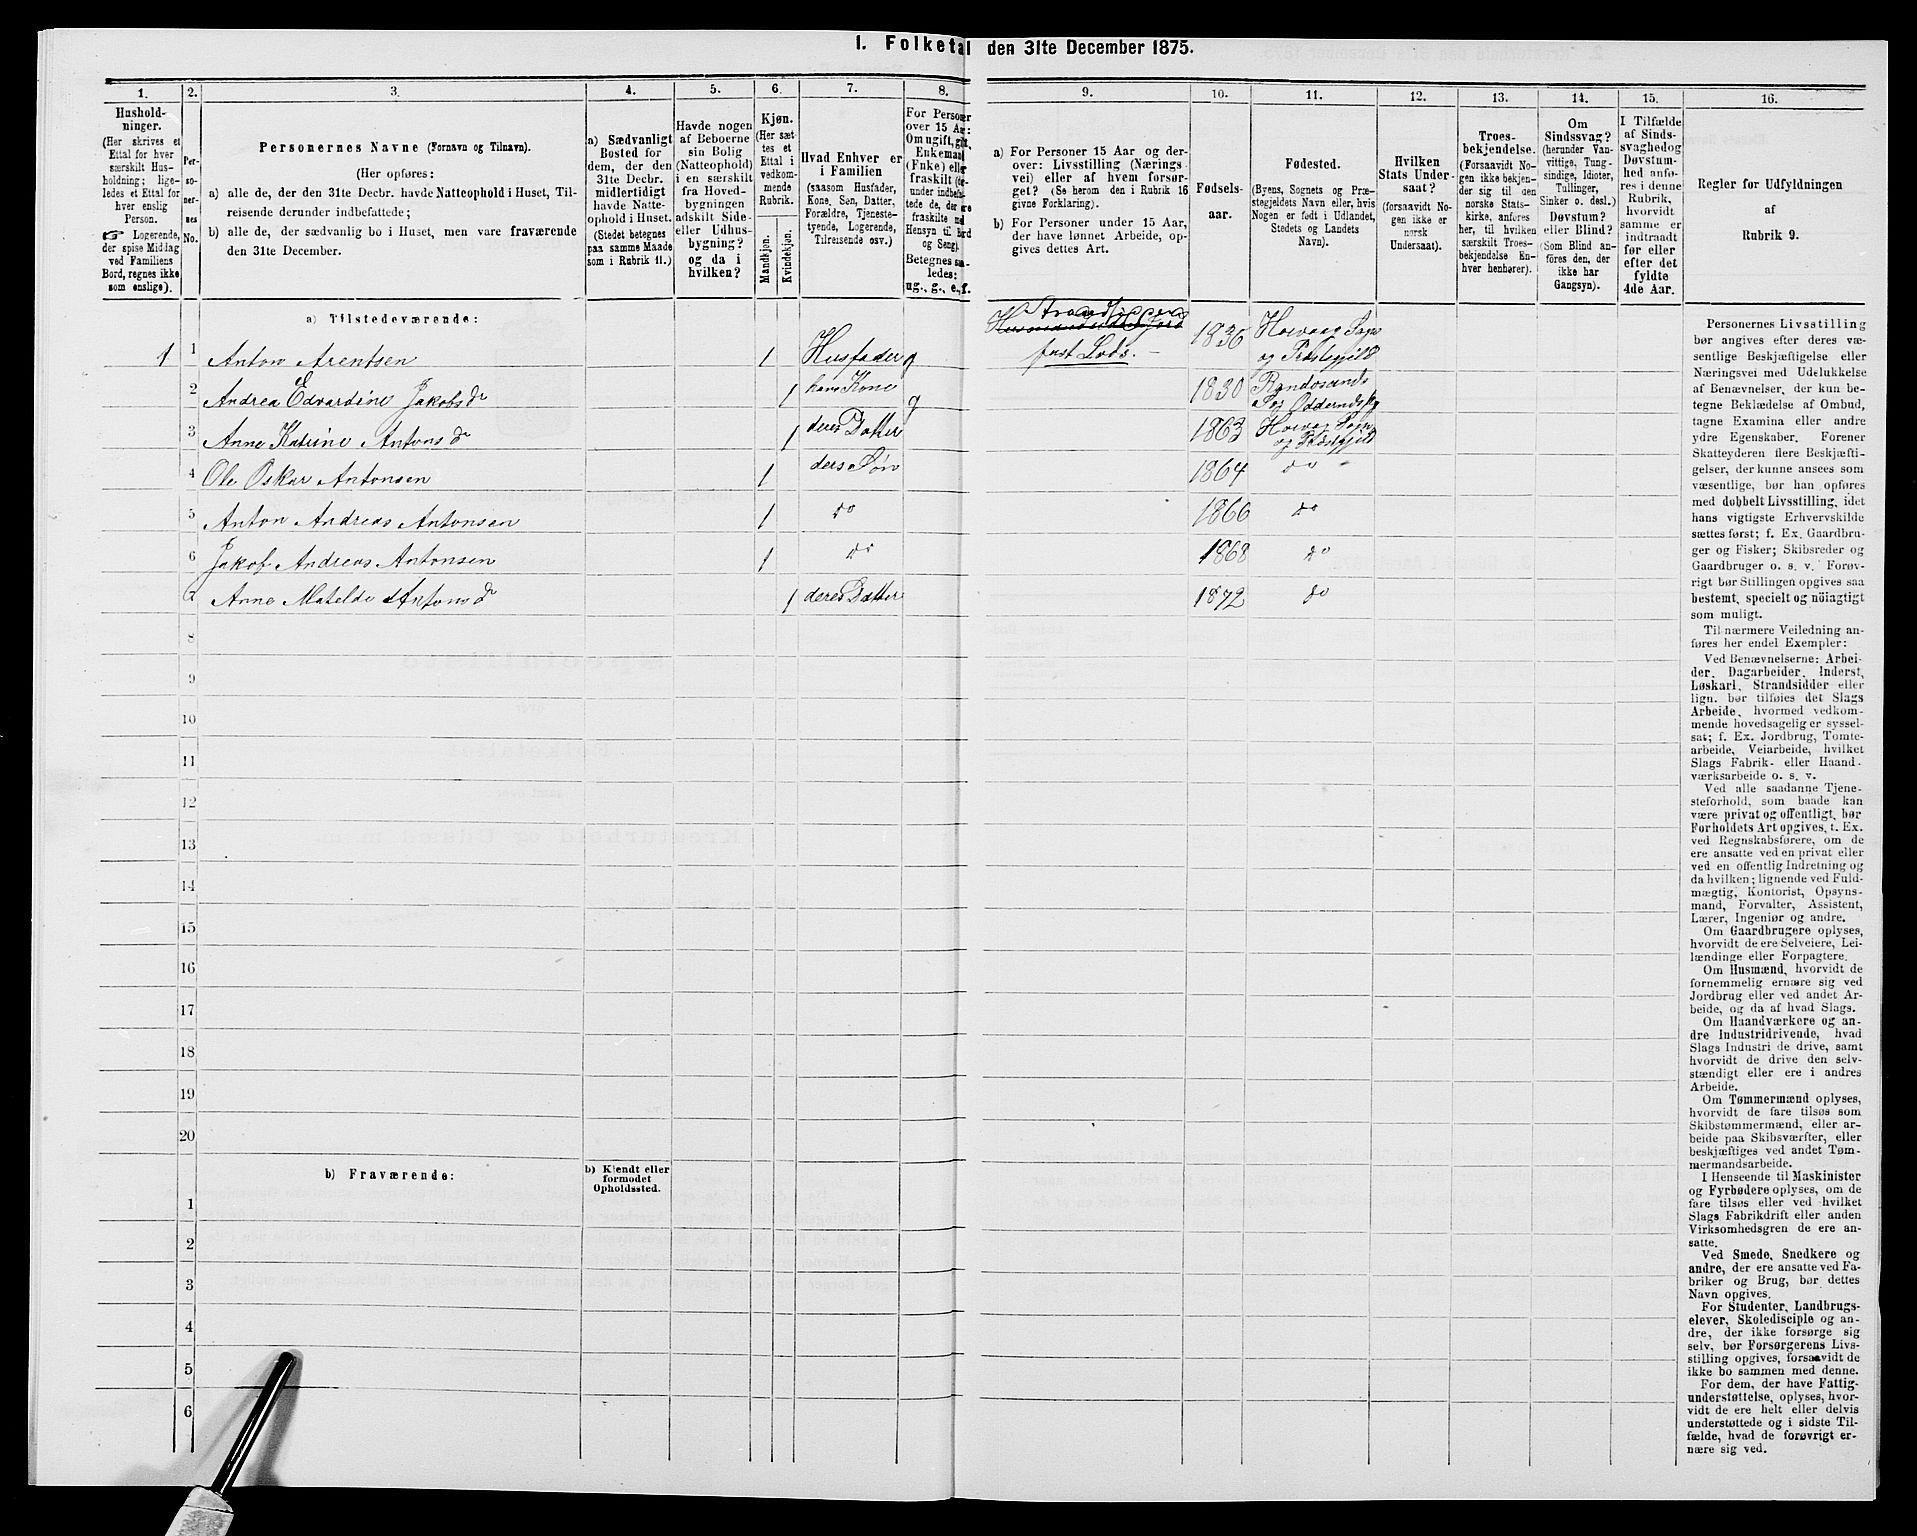 I. Folketal den 31te December 1875.
1. 2. 3. 4. 5. 6. 7. 8. 9. 10. 11. 12. 13. 14. 15. 16.
Hushold-
ninger.
(Her skrives et
Ettal for hver
særskilt Hus-
holdning; lige-
ledes et Ettal for
hver enslig
Person.
☞ Logerende,
der spise Middag
ved Familiens
Bord, regnes ikke
som enslige).
Per-
so-
ner-
nes
No.
Personernes Navne (Fornavn og Tilnavn).
(Her opføres:
a) alle de, der den 31te Decbr. havde Natteophold i Huset, Til-
reisende derunder indbefattede;
b) alle de, der sædvanlig bo i Huset, men vare fraværende
den 31te December.
a) Sædvanligt
Bosted for
dem, der den
31te Decbr.
midlertidigt
havde Natte-
ophold i Huset.
(Stedet betegnes
paa samme Maade
som i Rubrik 11.)
Havde nogen
af Beboerne
sin Bolig
(Natteophold)
i en særskilt
fra Hoved-
bygningen
adskilt Side-
eller Udhus-
bygning?
og da i
hvilken?
Kjøn.
(Her sæt-
tes et
Ettal i
vedkom-
mende
Rubrik.
Mandkjøn.
Kvindekjøn.
Hvad Enhver er
i Familien
(saasom Husfader,
Kone, Søn, Datter,
Forældre, Tjeneste-
tyende, Logerende,
Tilreisende osv.)
For Personer
over 15 Aar:
Om ugift, gift,
Enkemand
(Enke) eller
fraskilt
Hensyn til Bord
og Seng).
ug., g., e., f.
a) For Personer 15 Aar og der-
over: Livsstilling (Nærings-
vei) eller af hvem forsør-
get? (Se herom den i Rubrik 16
givne Forklaring).
b) For Personer under 15 Aar,
der have lønnet Arbeide, op-
gives dettes Art.
Fødsels-
aar.
Fødested.
(Byens, Sognets og Præ-
stegjeldets Navn eller, hvis
Nogen er født i Udlandet,
Stedets og Landets
Navn).
Hvilken
Stats Under-
saat?
(forsaavidt No-
gen ikke er
norsk
Undersaat).
Troes-
bekjendelse.
(Forsaavidt No-
gen ikke bekjen-
der sig til den
norske Stats-
kirke, anføres
her, til hvilken
særskilt Troes-
bekjendelse En-
hver henhører).
Om
Sindssvag?
(herunder Van-
vittige, Tung-
sindige, Idioter,
Tullinger,
Sinker o. desl.)
Døvstum?
eller Blind?
(Som Blind an-
føres den, der
ikke har
Gangsyn).
I Tilfælde
af Sinds-
svaghed og
Døvstum-
hed anfø-
res i denne
Rubrik,
hvorvidt
samme er
indtraadt
før eller
efter det
fyldte
4de Aar.
Regler for Udfyldningen
af
Rubrik 9.
a) Tilstedeværende:
1 1 Anton Arentsen 1 Husfader g Strandsidder fast Lods. 1836 Høivaag Sogn og Præstegjeld
2 Andrea Edvardine Jakobsdr 1 hans Kone g 1830
3 Anne Katrine Antonsdr 1 deres Datter 1863 Høivaag Sogn og Præstegjeld
4 Ole Oskar Antonsen 1 deres Søn 1864 do
5 Anton Andreas Antonsen 1 do 1866 do
6 Jakob Andreas Antonsen 1 do 1868 do
7 Anne Matelde Antonsdr 1 deres Datter 1872 do
8
9
10
11
12
13
14
15
16
17
18
19
20
b) Fraværende:
b) Kjendt eller
formodet
Opholdssted.
1
2
3
4
5
6
Personernes Livsstilling
bør angives efter deres væ-
sentlige Beskjæftigelse eller
Næringsvei med Udelukkelse
af Benævnelser, der kun be-
tegne Beklædelse af Ombud,
tagne Examina eller andre
ydre Egenskaber. Forener
Skatteyderen flere Beskjæfti-
gelser, der kunne ansees som
væsentlige, bør han opføres
med dobbelt Livsstilling, idet
hans vigtigste Erhvervskilde
sættes først; f. Ex. Gaardbru-
ger og Fisker; Skibsreder og
Gaardbruger o. s. v. Forøv-
rigt bør Stillingen opgives saa
bestemt, specielt og nøiagtigt
som muligt.
Til nærmere Veiledning an-
føres her endel Exempler:
Ved Benævnelserne: Arbei-
der, Dagarbeider, Inderst,
Løskarl, Strandsidder eller
lign. bør tilføies det Slags
Arbeide, hvormed vedkom-
mende hovedsagelig er syssel-
sat; f. Ex. Jordbrug, Tomte-
arbeide, Veiarbeide, hvilket
Slags Fabrik- eller Haand-
værksarbeide o. s. v.
Ved alle saadanne Tjene-
steforhold, som baade kan
være privat og offentligt, bør
Forholdets Art opgives, t. Ex.
ved Regnskabsførere, om de
ere ansatte ved en privat eller
ved en offentlig Indretning og
da hvilken; lignende ved Fuld-
mægtig, Kontorist, Opsyns-
mand, Forvalter, Assistent,
Lærer, Ingeniør og andre.
Om Gaardbrugere oplyses,
hvorvidt de ere Selveiere, Lei-
lændinge eller Forpagtere.
Om Husmænd, hvorvidt de
fornemmelig ernære sig ved
Jordbrug eller ved andet Ar-
beide, og da af hvad Slags.
Om Haandværkere og an-
dre Industridrivende, hvad
Slags Industri de drive, samt
hvorvidt de drive den selv-
stændigt eller ere i andres
Arbeide.
Om Tømmermænd oplyses,
hvorvidt de fare tilsøs som
Skibstømmermænd, eller ar-
beide paa Skibsværfter, eller
beskjæftiges ved andet Tøm-
mermandsarbeide.
I Henseende til Maskinister
og Fyrbødere oplyses, om de
fare tilsøs eller ved hvilket
Slags Fabrikdrift eller anden
Virksomhedsgren de ere an-
satte.
Ved Smede, Snedkere og
andre, der ere ansatte ved Fa-
briker og Brug, bør dettes
Navn opgives.
For Studenter, Landbrugs-
elever, Skoledisciple og an-
dre, der ikke forsørge sig
selv, bør Forsørgerens Livs-
stilling opgives, forsaavidt de
ikke bo sammen med denne.
For dem, der have Fattig-
understøttelse, oplyses, hvor-
vidt de ere helt eller delvis
understøttede og i sidste Til-
fælde, hvad de forøvrigt er-
nære sig ved.